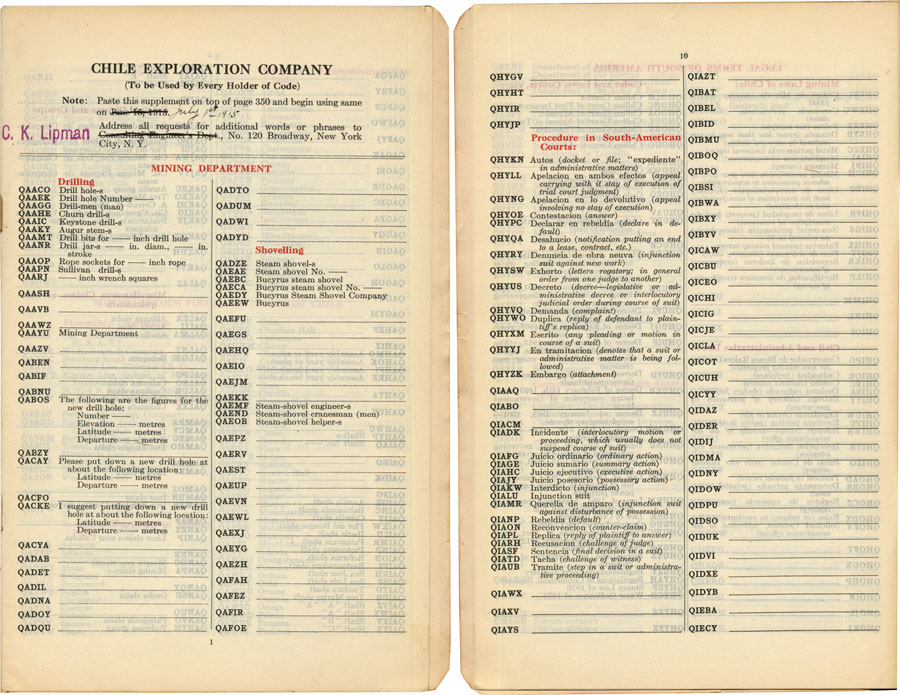 CHILE EXPLORATION COMPANY
(To be Used by Every Holder of Code)
Note: Paste this supplement on top of page 350 and begin using same
on June 15, 1915. July 1st 1915
C. K. Lipman
Address all requests for additional words or phrases to
Consulting Engineer's Dept., No. 120 Broadway, New York
City, N. Y.
MINING DEPARTMENT
Drilling
QAACO Drill hole-s
QAAEK Drill hole Number ——
QAAGG Drill-men (man)
QAAHE Churn drill-s
QAAIC Keystone drill-s
QAAKY Augur stem-s
QAAMT Drill bits for —— inch drill hole
QAANR Drill jar-s —— in. diam., —— in.
stroke
QAAOP Rope sockets for —— inch rope
QAAPN Sullivan drill-s
QAARJ —— inch wrench squares
QAASH
QAAVB
QAAWZ
QAAYU Mining Department
QAAZV
QABEN
QABIF
QABNU
QABOS The following are the figures for the
new drill hole:
Number ——
Elevation —— metres
Latitude —— metres
Departure —— metres
QABZY
QACAY Please put down a new drill hole at
about the following location:
Latitude —— metres
Departure —— metres
QACFO
QACKE I suggest putting down a new drill
hole at about the following location:
Latitude —— metres
Departure —— metres
QACYA
QADAB
QADET
QADIL
QADNA
QADOY
QADQU
QADTO
QADUM
QADWI
QADYD
Shovelling
QADZE Steam shovel-s
QAEAE Steam shovel No. ——
QAEBC Bucyrus steam shovel
QAECA Bucyrus steam shovel No. ——
QAEDY Bucyrus Steam Shovel Company
QAEEW Bucyrus
QAEFU
QAEGS
QAEHQ
QAEIO
QAEJM
QAEKK
QAEMF Steam-shovel engineer-s
QAEND Steam-shovel cranesman (men)
QAEOB Steam-shovel helper-s
QAEPZ
QAERV
QAEST
QAEUP
QAEVN
QAEWL
QAEXJ
QAEYG
QAEZH
QAFAH
QAFEZ
QAFIR
QAFOE
1
10
QHYGV
QHYHT
QHYIR
QHYJP
Procedure in South-American
Courts:
QHYKN Autos (docket or file; "expediente"
in administrative matters)
QHYLL Apelacion en ambos efectos (appeal
carrying with it stay of execution of
trial court judgment)
QHYNG Apelacion en lo devolutivo (appeal
involving no stay of execution)
QHYOE Contestacion (answer)
QHYPC Declarar en rebeldia (declare in de-
fault)
QHYQA Desahucio (notification putting an end
to a lease, contract, etc.)
QHYRY Denuncia de obra nueva (injunction
suit against new work)
QHYSW Exhorto (letters rogatory; in general
order from one judge to another)
QHYUS Decreto (decree—legislative or ad-
ministrative decree or interlocutory
judicial order during course of suit)
QHYVQ Demanda (complaint)
QHYWO Duplica (reply of defendant to plain-
tiff's replica)
QHYXM Escrito (any pleading or motion in
course of a suit)
QHYYJ En tramitacion (denotes that a suit or
administrative matter is being fol-
lowed)
QHYZK Embargo (attachment)
QIAAQ
QIABO
QIACM
QIADK Incidente (interlocutory motion or
proceeding, which usually does not
suspend course of suit)
QIAFG Juicio ordinario (ordinary action)
QIAGE Juicio sumario (summary action)
QIAHC Juicio ejecutivo (executive action)
QIAJY Juicio posesorio (possessory action)
QIAKW Interdicto (injunction)
QIALU Injunction suit
QIAMR Querella de amparo (injunction suit
against disturbance of possession)
QIANP Rebeldia (default)
QIAON Reconvencion (counter-claim)
QIAPL Replica (reply of plaintiff to answer)
QIARH Recusacion (challenge of judge)
QIASF Sentencia (final decision in a suit)
QIATD Tacha (challenge of witness)
QIAUB Tramite (step in a suit or administra-
tive proceeding)
QIAWX
QIAXV
QIAYS
QIAZT
QIBAT
QIBEL
QIBID
QIBMU
QIBOQ
QIBPO
QIBSI
QIBWA
QIBXY
QIBYV
QICAW
QICBU
QICEO
QICHI
QICIG
QICJE
QICLA
QICOT
QICUH
QICYY
QIDAZ
QIDER
QIDIJ
QIDMA
QIDNY
QIDOW
QIDPU
QIDSO
QIDUK
QIDVI
QIDXE
QIDYB
QIEBA
QIECY